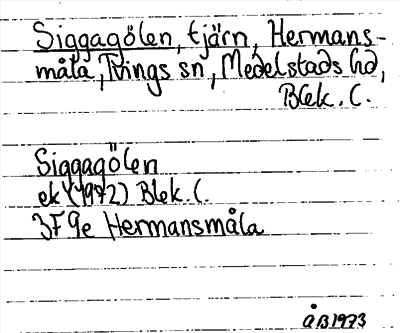 Siggagölen, tjärn, Hermans-
måla, Tvings sn, Medelstads hd,
Blek. l.
Siggagölen
ek (1972) Blek. l.
3F 9e Hermansmåla
ÅB 1973